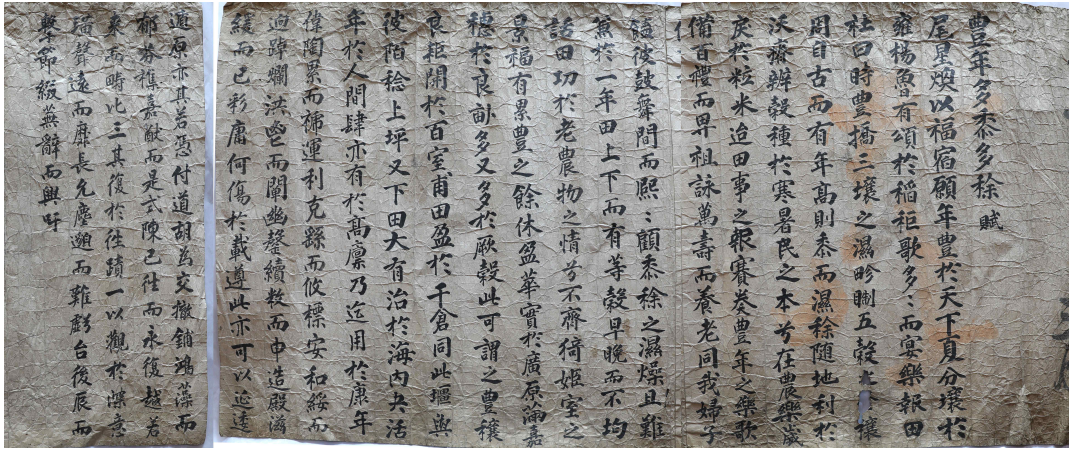 豊年多黍多稌 賦
尾星煥以福宿願年豊於天下頁分壤於
雍楊魯有頌於稻秬歌多〻而宴樂報田
杜曰時豊播三壤之濕畛制五穀 穰
周自古而有年高則黍而濕稌随地利於
沃齋辨穀種於寒暑民之本兮在農樂歲
戾於粒米迨田事之報賽矣豊年之樂歌
備百禮而畀祖詠萬壽而養老同我婦子
饁彼鼓舞間而熙〻顧黍稌之濕燥且難
無於一年田上下而有等穀早晚而不均
話田功於老農物之情兮不齊猗姬室之
景福有累豊之餘休盈華實於廣原滿嘉
穗於良畝多又多於厥穀此可謂之豊穰
良耟開於百室甫田盈於千倉同此壇與
彼陌稔上坪又下田大有治於海内夬活
年於人間肆亦有於高廪乃迄用於康年
偉陶累而 運利克繇而攸標安和綏而
迫蹕爛洪 而闡幽 續數而申造殿滋
緩而已彩庸何傷於載遵此亦可以
道原亦其若憑付道胡為交撤銷鴻藻而
郁芬樵嘉猷而是式陳已徃而永復越若
來而時比三其復於徃蹟一以觀於 意
瑙聲遠而靡長允塵 而難 台後辰而
擧節綴蕪辭而興吁